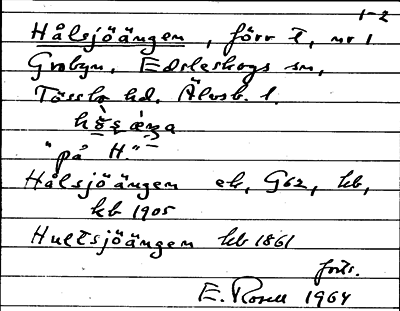 1-2
Hålsjöängen, förr t, nr 1
Grobyn, Edsleskogs sn,
Tössbo hd, Älvsb. l.
"på H."
Hålsjöängen ek, G62, hb,
kb 1905
Hultsjöängen hb 1861
forts.
E. Rosell 1964